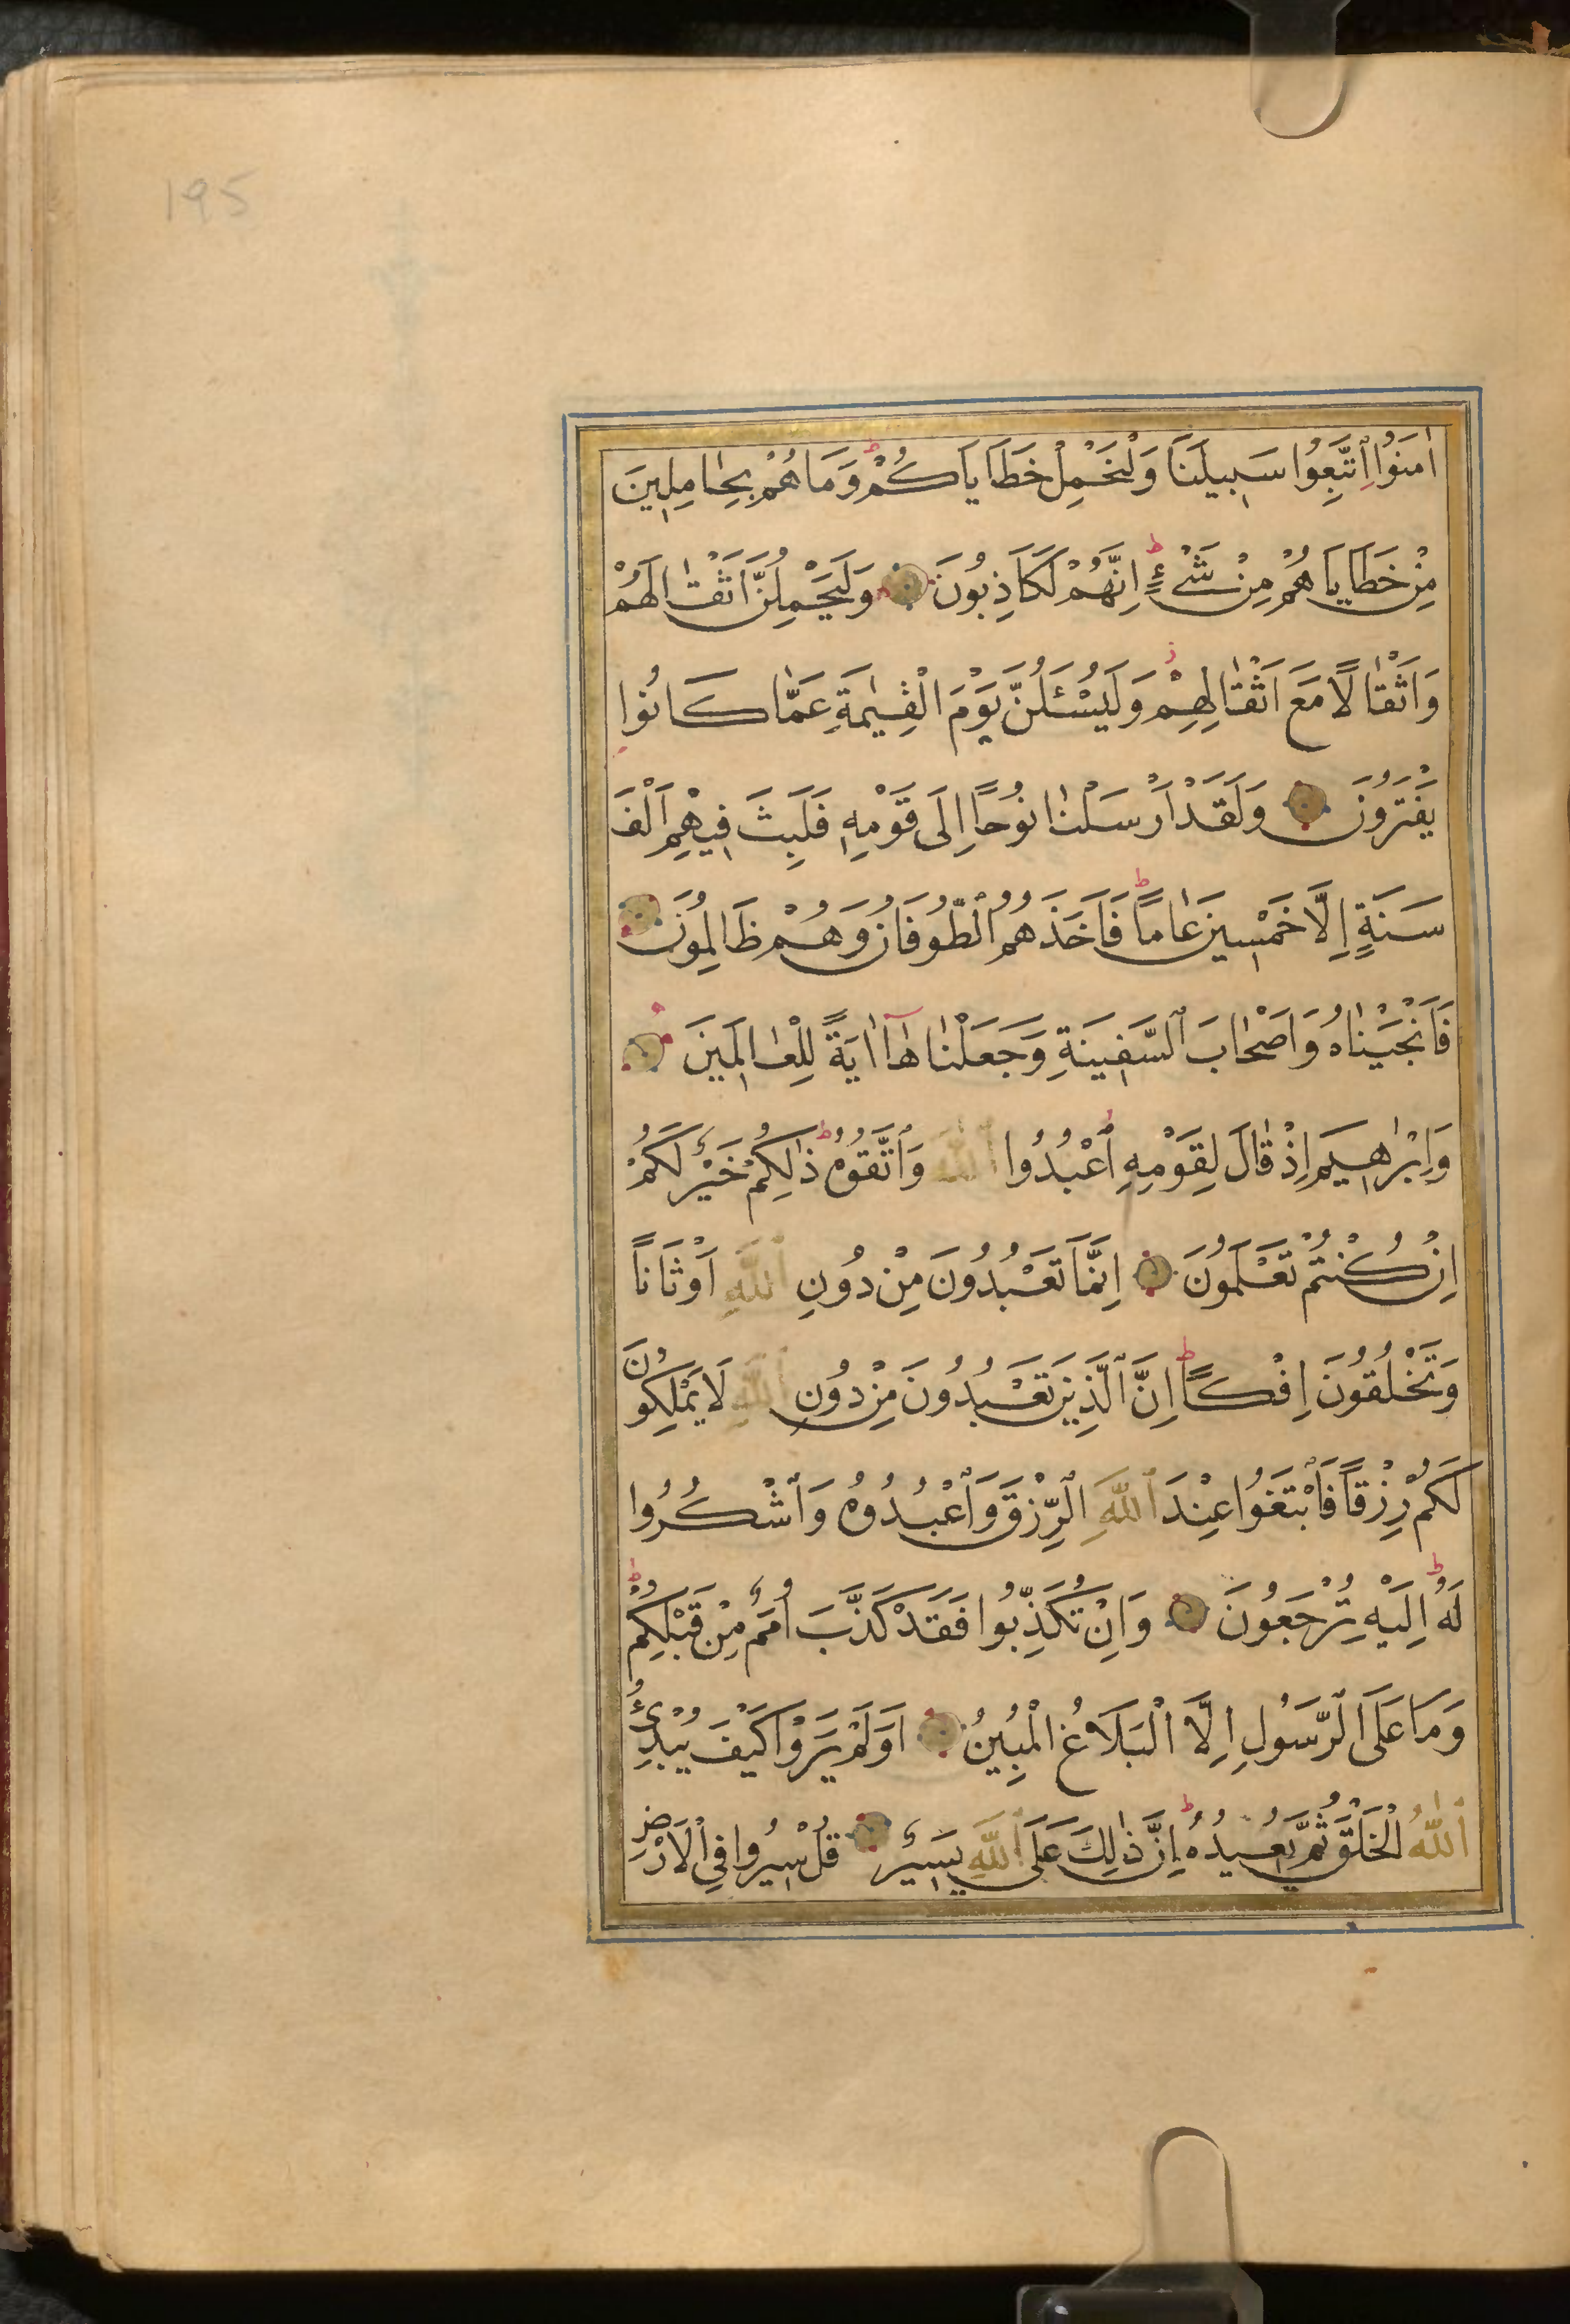 195
اٰمَنُوا اتَّبِعُوا سَبِيلَنَا وَلْنَحْمِلْ خَطَايَاكُمْ ط وَمَا هُمْ بِحَامِلِينَ
مِنْ خَطَايَاهُمْ مِنْ شَيْءٍ ط اِنَّهُمْ لَكَاذِبُونَ وَلَيَحْمِلُنَّ اَثْقَالَهُمْ
وَاَثْقَالًا مَعَ اَثْقَالِهِمْ ز وَلَيُسْئَلُنَّ يَوْمَ الْقِيٰمَةِ عَمَّا كَانُوا
يَفْتَرُونَ وَلَقَدْ اَرْسَلْنَا نُوحًا اِلَى قَوْمِهِ فَلَبِثَ فِيهِمْ اَلْفَ
سَنَةٍ اِلَّا خَمْسِينَ عَامًا ط فَاَخَذَهُمُ الطُّوفَانُ وَهُمْ ظَالِمُونَ
فَاَنْجَيْنَاهُ وَاَصْحَابَ السَّفِينَةِ وَجَعَلْنَاهَا اٰيَةً لِلْعَالَمِينَ
وَاِبْرٰهِيمَ اِذْ قَالَ لِقَوْمِهِ اعْبُدُوا اللّٰهَ وَاتَّقُوهُ ط ذٰلِكُمْ خَيْرٌ لَكُمْ
اِنْ كُنْتُمْ تَعْلَمُونَ اِنَّمَا تَعْبُدُونَ مِنْ دُونِ اللّٰهِ اَوْثَانًا
وَتَخْلُقُونَ اِفْكًا ط اِنَّ الَّذِينَ تَعْبُدُونَ مِنْ دُونِ اللّٰهِ لَا يَمْلِكُونَ
لَكُمْ رِزْقًا فَابْتَغُوا عِنْدَ اللّٰهِ الرِّزْقَ وَاعْبُدُوهُ وَاشْكُرُوا
لَهُ ط اِلَيْهِ تُرْجَعُونَ وَاِنْ تُكَذِّبُوا فَقَدْ كَذَّبَ اُمَمٌ مِنْ قَبْلِكُمْ ط
وَمَا عَلَى الرَّسُولِ اِلَّا الْبَلَاغُ الْمُبِينُ اَوَلَمْ يَرَوْا كَيْفَ يُبْدِئُ
اللّٰهُ الْخَلْقَ ثُمَّ يُعِيدُهُ ط اِنَّ ذٰلِكَ عَلَى اللّٰهِ يَسِيرٌ قُلْ سِيرُوا فِي الْاَرْضِ